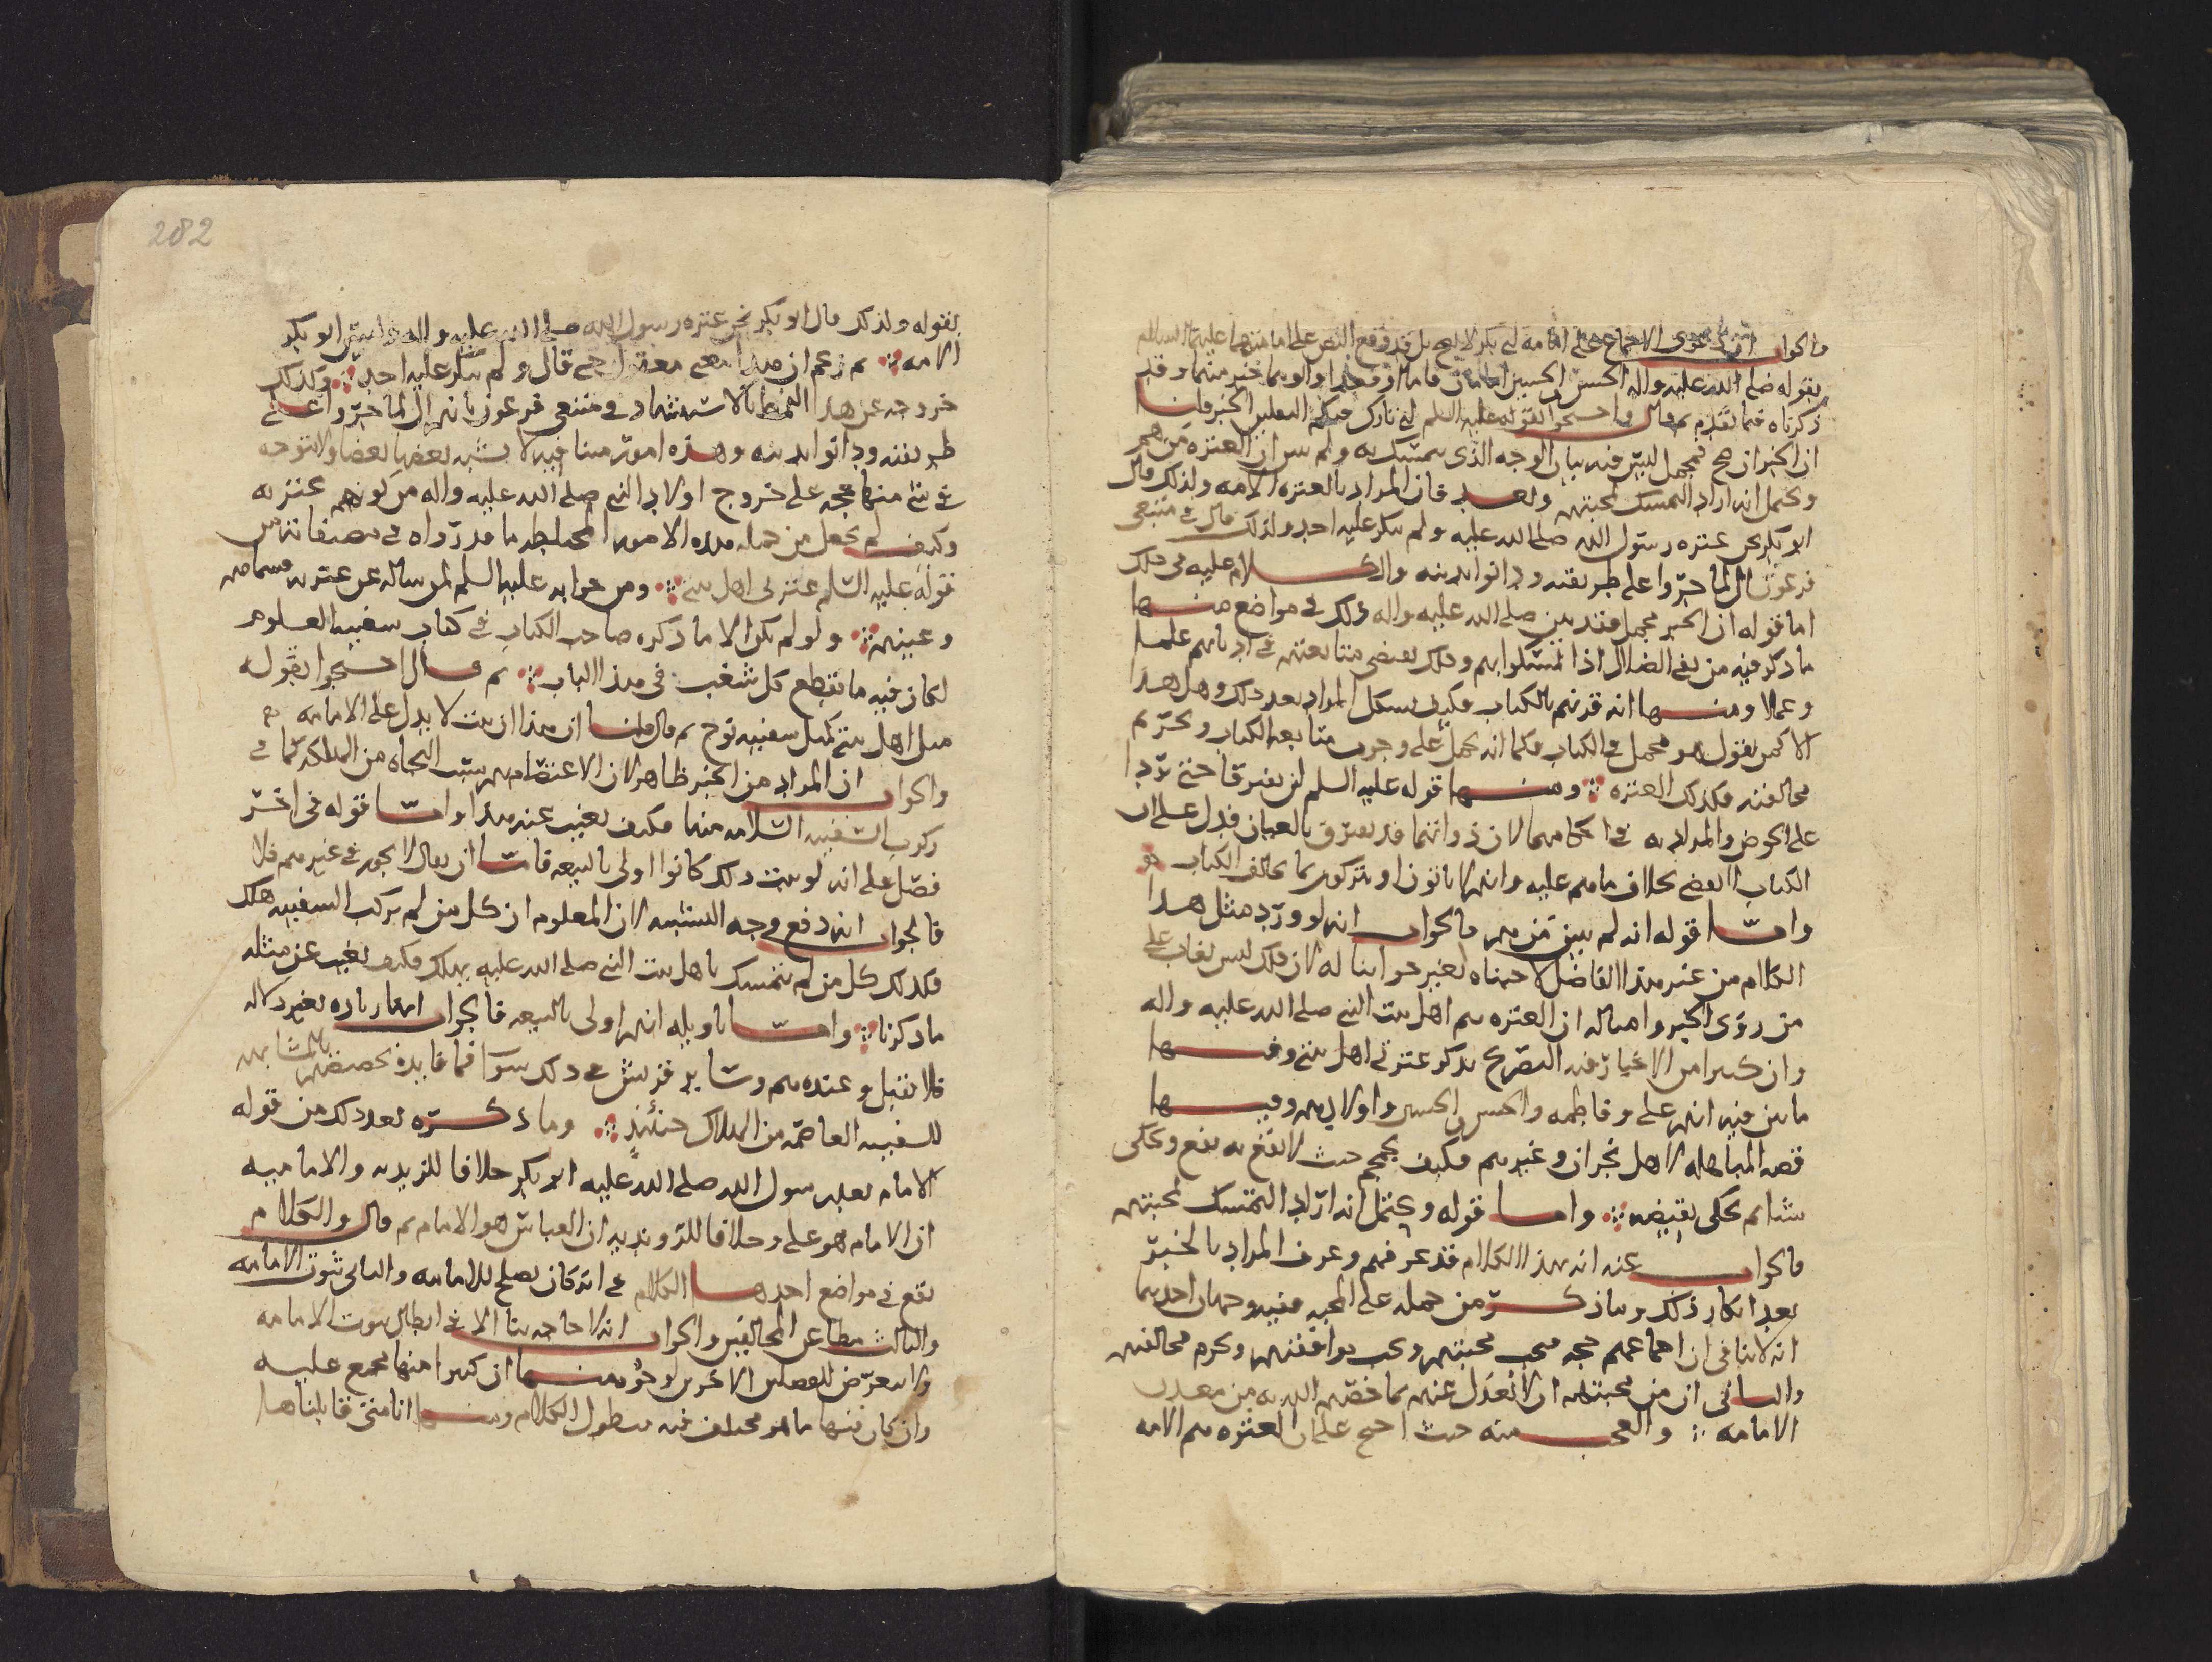 فالجواب ان دعوى الاجماع على امامة ابي بكر لا يصح بل قد وقع النص على امامتهما عليهما السلام
بقوله صلى الله عليه واله الحسن والحسين امامان قاما او قعدا وابوهما خير منهما وقد
ذكرناه فيما تقدم ثم قال واحتجوا بقوله عليه السلم اني تارك فيكم الثقلين الخبر قلنا
ان الخبر ان صح فمجمل ليس فيه بيان الوجه الذي يتمسك به ولم يبين ان العترة من هم
ويحتمل انه اراد التمسك بمحبتهم وبعد فان المراد بالعترة الامة ولذلك قال
ابو بكر نحن عترة رسول الله صلى الله عليه ولم ينكر عليه احد ولذلك قال في متبعي
فرعون ال لما جروا على طريقته ودانوا بدينه والكلام عليه في ذلك
اما قوله ان الخبر مجمل فقد بين صلى الله عليه واله ذلك في مواضع منها
ما ذكر فيه من نفي الضلال اذا تمسكوا بهم وذلك يقتضي متابعتهم في اديانهم علما
وعملا ومنها انه قرنهم بالكتاب فكيف يشكل المراد بعد ذلك وهل هذا
الا كمن يقول هو مجمل في الكتاب فكما انه يحمل على وجوب متابعة الكتاب وتحريم
مخالفته فكذلك العترة ومنها قوله عليه السلم لن يفترقا حتى يردا
على الحوض والمراد به في احكامهما لان ذواتهما قد تفترق بالعيان فدل على ان
الكتاب لا يقضي بخلاف ما هم عليه وانهم لا ياتون او يتركون بما يخالف الكتاب
واما قوله انه لم يبين من هم فالجواب انه لو ورد مثل هذا
الكلام من غير هذا الفاضل لاجبناه بغير جوابنا له لان ذلك ليس بغائب على
من روى الخبر وامثاله ان العترة هم اهل بيت النبي صلى الله عليه واله
وان كثيرا من الاخبار فيه التصريح بذكر عترتي اهل بيتي ومنها
ما بين فيه انهم علي وفاطمة والحسن والحسين واولادهم وفيها
قصة المباهلة لاهل نجران وغيرهم فكيف يجمجم حيث لا تقع به نفع ويحكي
شيا ثم يحكي نقيضه واما قوله ويحتمل انه اراد التمسك بمحبتهم
فالجواب عنه انه بهذا الكلام قد عرفهم وعرف المراد بالخبر
بعد انكار ذلك وما ذكره من حمله على المحبة ففيه وجهان احدهما
انه لا ينافي ان اجماعهم حجة فيجب محبتهم ويجب موافقتهم ويحرم مخالفتهم
والثاني ان من محبتهم ان لا نعدل عنهم بما خصهم الله به من معدن
الامامة والعجب منه حيث احتج على ان العترة هم الامة
282
بقوله ولذلك قال ابو بكر نحن عترة رسول الله صلى الله عليه واله وليس ابو بكر
الامة ثم زعم ان هذا معنى معقول حتى قال ولم ينكر عليه احد وكذلك
خروجه عن هذا النمط بالاستشهاد في متبعي فرعون بانهم ال لما جروا على
طريقته ودانوا بدينه وهذه امور متنافية لا يشبه بعضها بعضا ولا توجد
في شي منها حجة على خروج اولاد النبي صلى الله عليه واله من كونهم عترته
وكيف لم يجعل من جملة هذه الامور المختلطة ما قد رواه في مصنفاته من
قوله عليه السلم عترتي اهل بيتي ومن جوابه عليه السلم لمن ساله عن عترته فسماهم
وعينهم ولو لم يكن الا ما ذكره صاحب الكتاب في كتاب سفينة العلوم
لكان فيه ما يقطع كل شغب في هذا الباب ثم قال احتجوا بقوله
مثل اهل بيتي كمثل سفينة نوح ثم قال قلنا ان هذا ان ثبت لا يدل على الامامة
والجواب ان المراد من الخبر ظاهر لان الاعتصام بهم سبب النجاة من الهلكة كما في
ركوب السفينة السلامة منها فكيف يغيب عنه هذا واما قوله في اخر
فصل على انه لو ثبت ذلك كانوا اولى بالبيعة فاما ان يقال لا يجوز في غيرهم فلا
فالجواب انه دفع وجه الشبه لان المعلوم ان كل من لم يركب السفينة هلك
فكذلك كل من لم يتمسك باهل بيت النبي صلى الله عليه يهلك فكيف يغيب عن مثله
ما ذكرنا واما تاويله انهم اولى بالبيعة فالجواب انها زيادة بغير دلالة
فلا تقبل وعنده هم وسائر قريش في ذلك سوا فما فايدة تخصيصهم بالمشابهة
للسفينة العاصمة من الهلاك حينئذ وما ذكره بعد ذلك من قوله
الامام بعد رسول الله صلى الله عليه ابو بكر خلافا للزيدية والامامية
ان الامام هو علي وخلافا للروندية ان العباس هو الامام ثم قال والكلام
يقع في مواضع احدها الكلام في انه كان يصلح للامامة والثاني ثبوت الامامة
والثالث مطاعن المخالفين والجواب انه لا حاجة بنا الا في ابطال ثبوت الامامة
ولا نتعرض للفصلين الاخرين لوجوه منها ان كثيرا منها مجمع عليه
وان كان فيها ما هو مختلف فيه يطول الكلام ومنها انا متى قابلناها